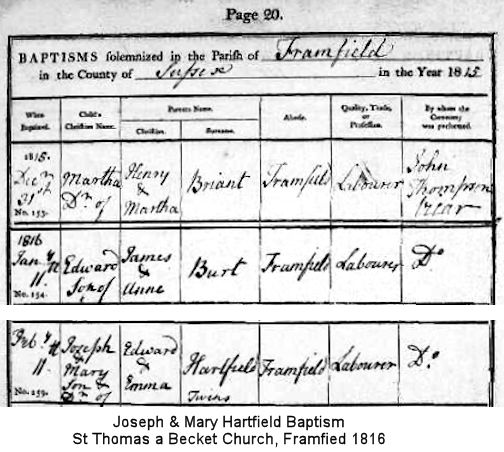 Page 20.
BAPTISMS solemnized in the Parish of Framfield
in the County of Sussex in the Year 1815
When Baptized. Child's Christian Name. Parents Name. Abode. Quality, Trade, or Profession. By whom the Ceremony was performed.
Christian. Surname.
1815. Decr 31st No. 153. Martha Dr of Henry & Martha Briant Framfield Labourer John Thompson Vicar
1816 Jany 11th No. 154. Edward Son of James & Anne Burt Framfield Labourer Do
Feby 11th No. 159. Joseph & Mary Son & Dr of Edward & Emma Hartfield Twins Framfield Labourer Do
Joseph & Mary Hartfield Baptism
St Thomas a Becket Church, Framfied 1816